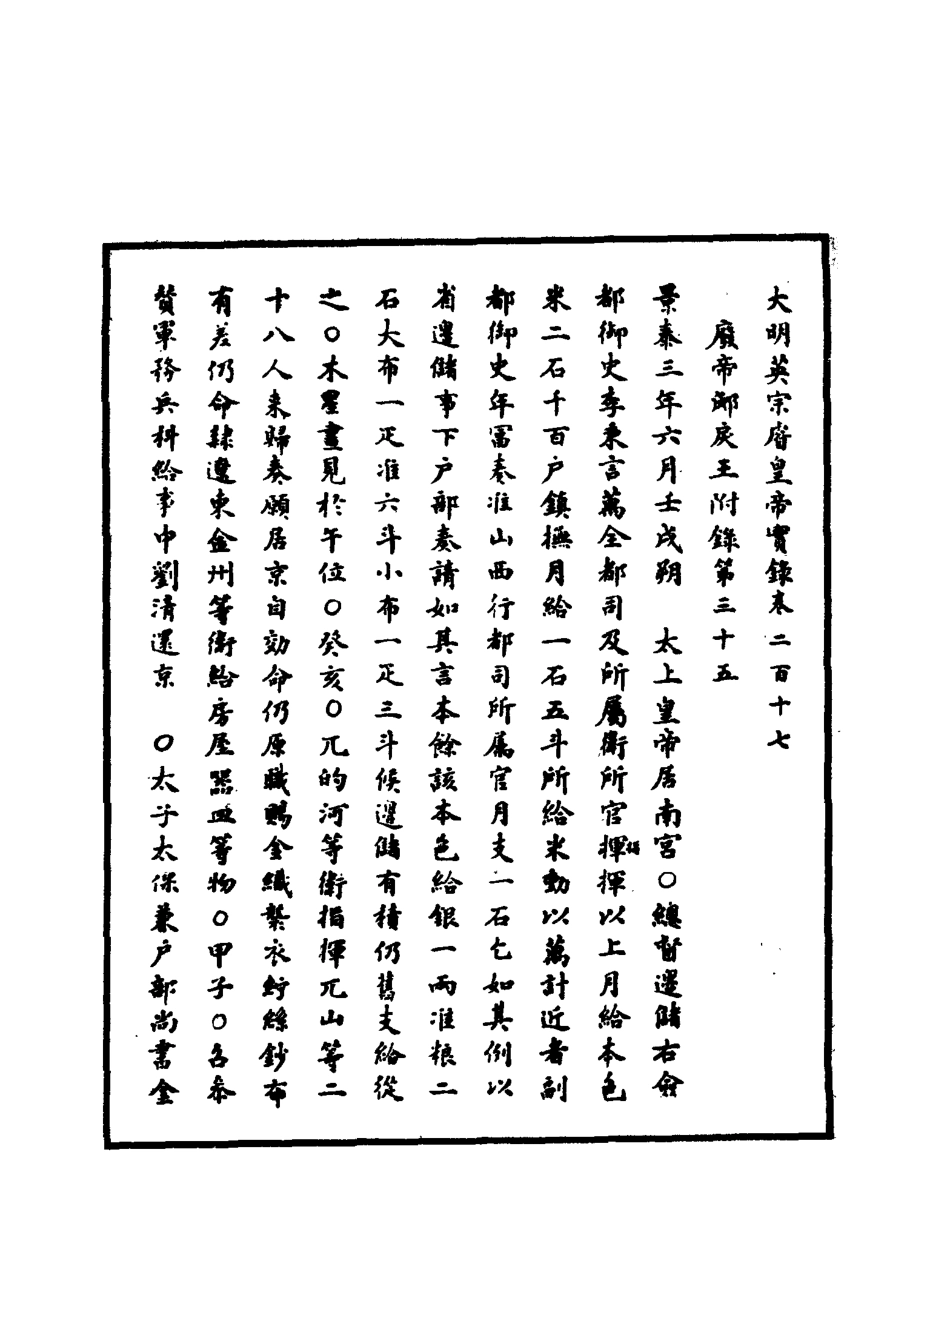 大明英宗睿皇帝實錄卷二百十七
廢帝郕戾王附錄第三十五
景泰三年六月壬戌朔　太上皇帝居南宮○總督邊儲右僉
都御史李秉言萬全都司及所屬衛所官揮指揮以上月給本色
米二石千百戶鎮撫月給一石五斗所給米動以萬計近者副
都御史年冨奏准山西行都司所属官月支一石乞如其例以
省邊儲事下户部奏請如其言本餘該本色給銀一兩准粮二
石大布一疋准六斗小布一疋三斗候邊儲有積仍舊支給從
之○木星晝見於午位○癸亥○兀的河等衛指揮兀山等二
十八人来歸奏願居京自効命仍原職賜金織襲衣紵絲鈔布
有差仍命隸邊東金州等衛給房屋器皿等物○甲子○名叅
賛軍務兵科給事中劉清還京　○太子太保兼户部尚書金